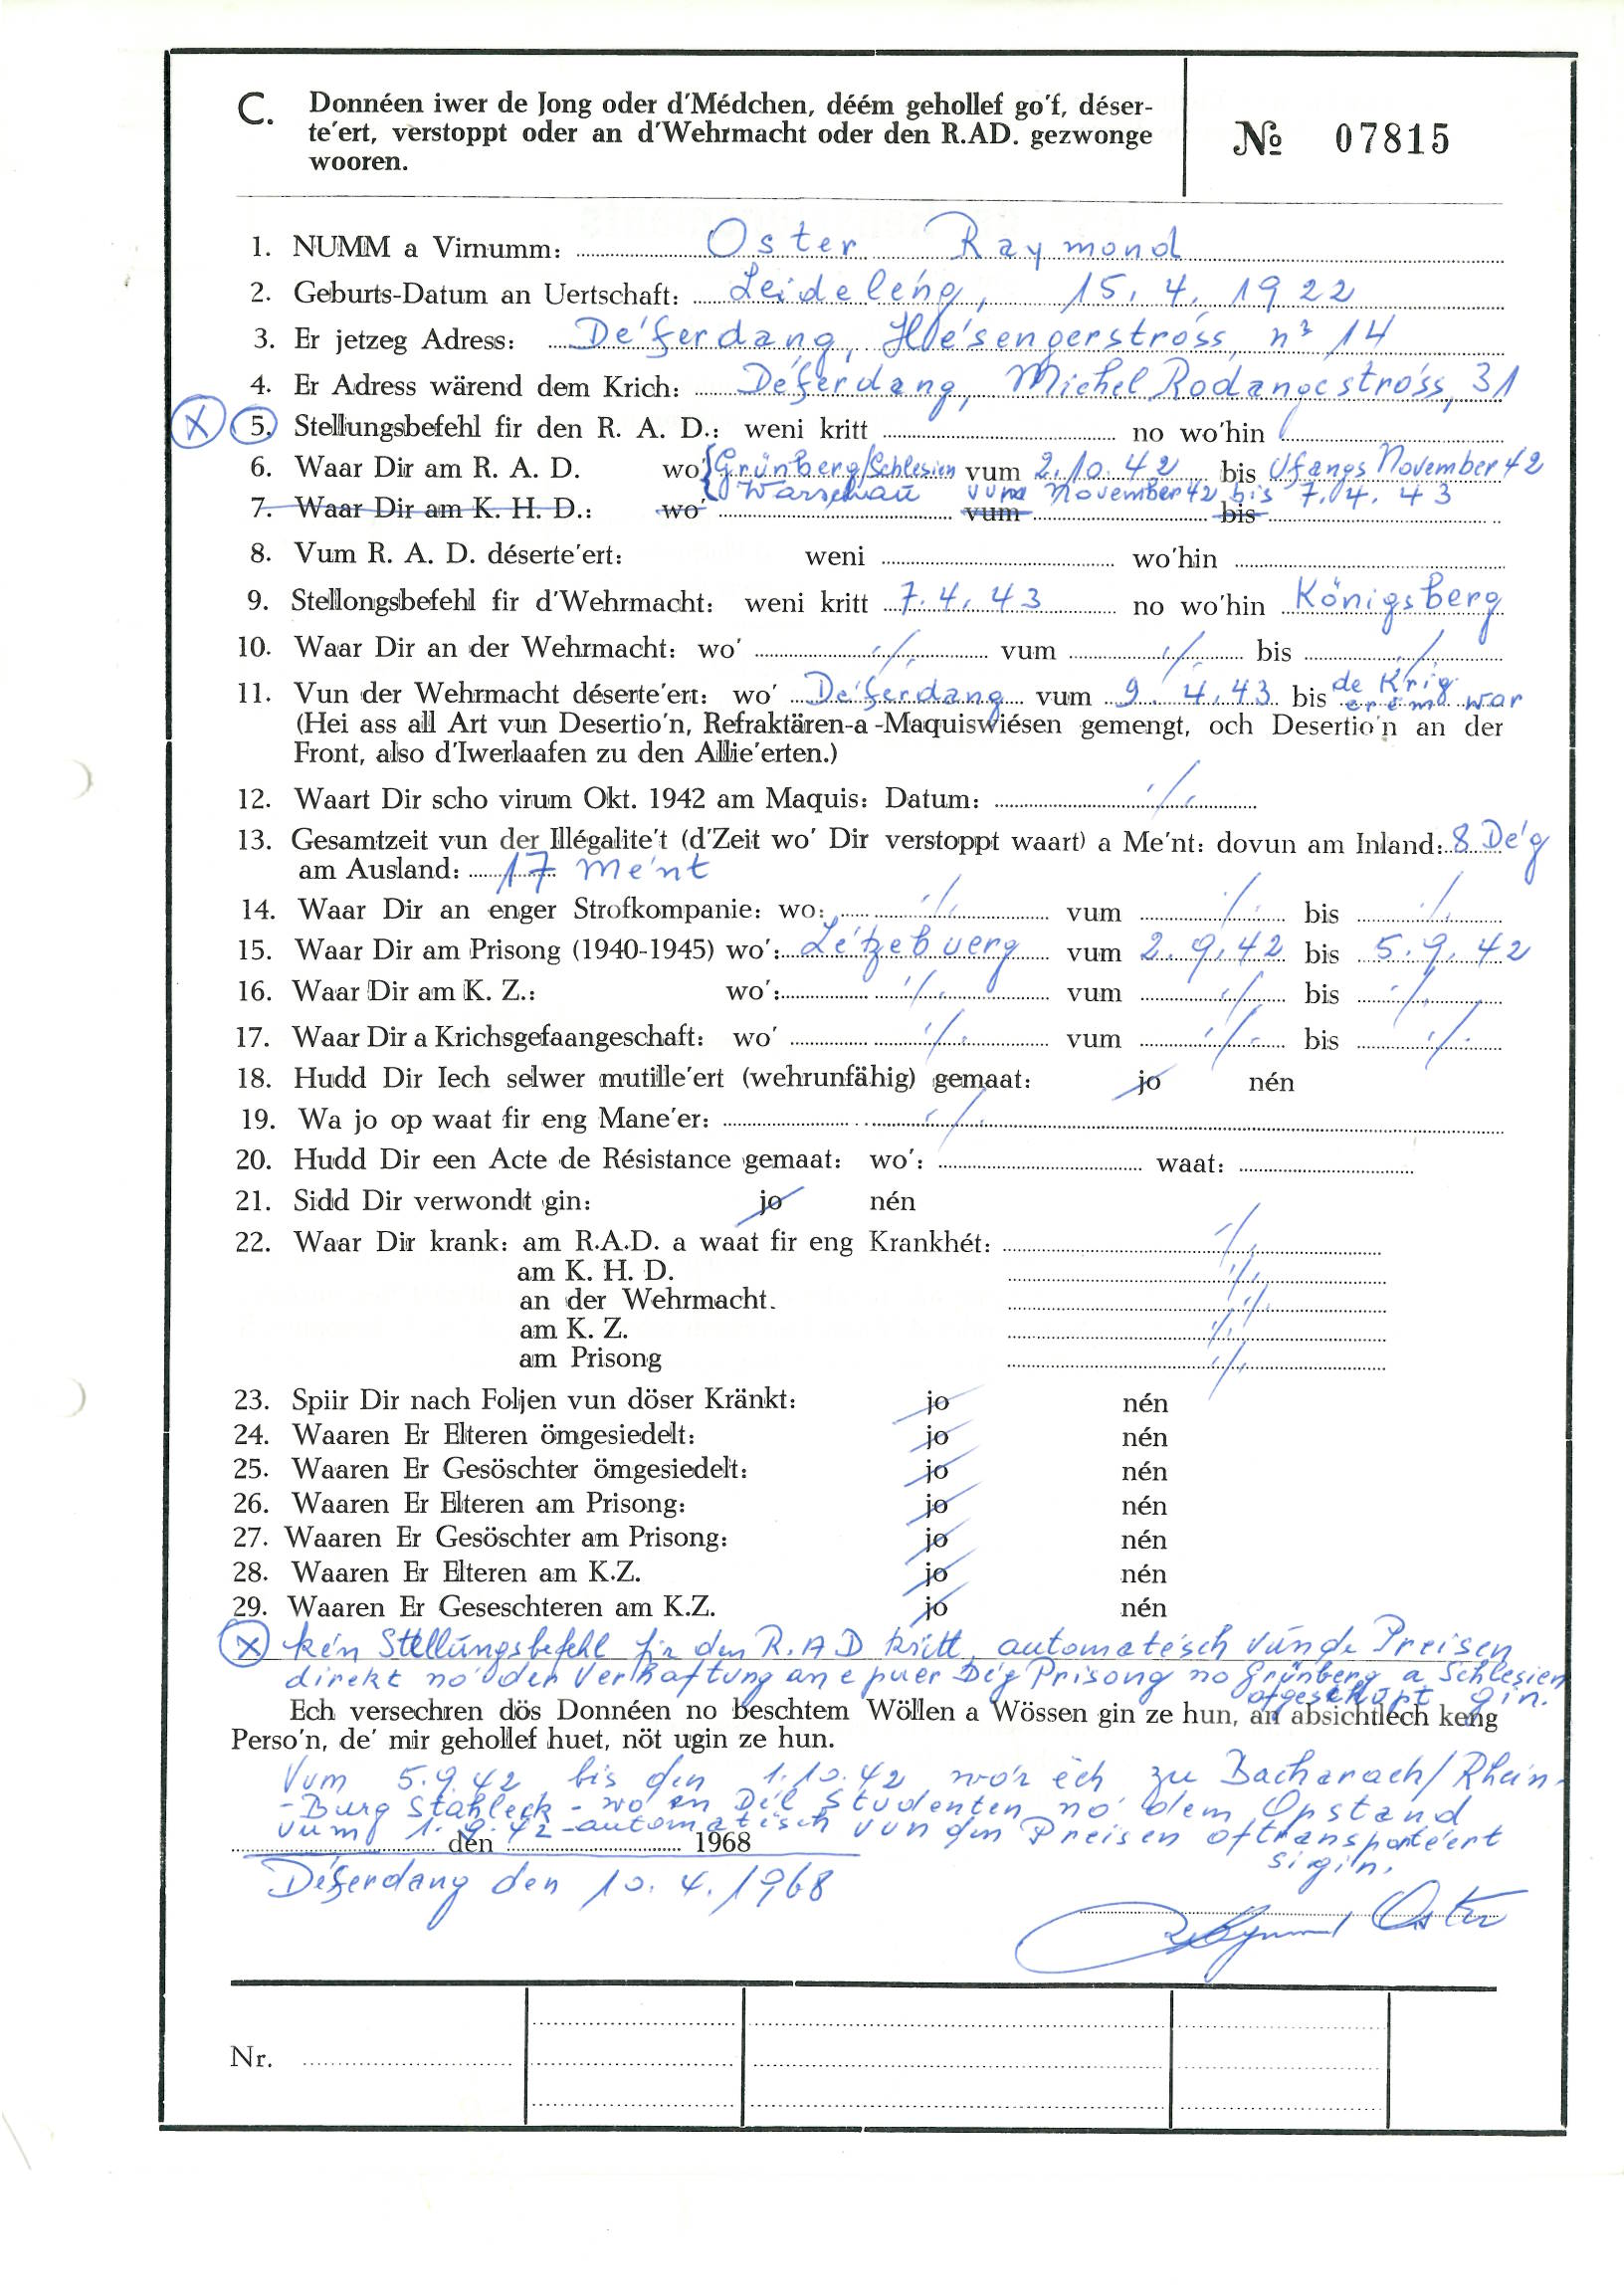 C. Donnéen iwer de Jong oder d'Médchen, déém gehollef go'f, déser-
te'ert, verstoppt oder an d'Wehrmacht oder den R.AD. gezwonge
wooren.
№ 07815
1. NUMM a Virnumm: Oster Raymond
2. Geburts-Datum an Uertschaft: Leideléng, 15.4.1922
3. Er jetzeg Adress: De'ferdang, Hiésengerstróss, n° 14
4. Er Adress wärend dem Krich: De'ferdang, Michel Rodangestro'ss, 31
X 5. Stellungsbefehl fir den R. A. D.: weni kritt no wo'hin
6. Waar Dir am R. A. D. wo' Grünberg/Schlesien vum 2.10.42 bis Ufangs November 42
Warschau vum November 42 bis 7.4.43
7. Waar Dir am K. H. D.: wo' vum bis
8. Vum R. A. D. déserte'ert: weni wo'hin
9. Stellongsbefehl fir d'Wehrmacht: weni kritt 7.4.43 no wo'hin Königsberg
10. Waar Dir an der Wehrmacht: wo' ./. vum ./. bis ./.
11. Vun der Wehrmacht déserte'ert: wo' De'ferdang vum 9.4.43 bis de Krig erëm war
(Hei ass all Art vun Desertio'n, Refraktären-a-Maquiswiésen gemengt, och Desertio'n an der
Front, also d'Iwerlaafen zu den Allie'erten.)
12. Waart Dir scho virum Okt. 1942 am Maquis: Datum: ./.
13. Gesamtzeit vun der Illégalite't (d'Zeit wo' Dir verstoppt waart) a Me'nt: dovun am Inland: 8 De'g
am Ausland: 17 Me'nt
14. Waar Dir an enger Strofkompanie: wo: ./. vum ./. bis ./.
15. Waar Dir am Prisong (1940-1945) wo': Lëtzebuerg vum 2.9.42 bis 5.9.42
16. Waar Dir am K. Z.: wo': ./. vum ./. bis ./.
17. Waar Dir a Krichsgefaangeschaft: wo' ./. vum ./. bis ./.
18. Hudd Dir Iech selwer mutille'ert (wehrunfähig) gemaat: jo nén
19. Wa jo op waat fir eng Mane'er: ./.
20. Hudd Dir een Acte de Résistance gemaat: wo': waat:
21. Sidd Dir verwondt gin: jo nén
22. Waar Dir krank: am R.A.D. a waat fir eng Krankhét: ./.
am K. H. D. ./.
an der Wehrmacht. ./.
am K. Z. ./.
am Prisong ./.
23. Spiir Dir nach Foljen vun döser Kränkt: jo nén
24. Waaren Er Elteren ömgesiedelt: jo nén
25. Waaren Er Gesöschter ömgesiedelt: jo nén
26. Waaren Er Elteren am Prisong: jo nén
27. Waaren Er Gesöschter am Prisong: jo nén
28. Waaren Er Elteren am K.Z. jo nén
29. Waaren Er Geseschteren am K.Z. jo nén
X ke'n Stellungsbefehl fir den R.A.D kritt, automatésch vun de Preisen
direkt no der Verhaftung an e puer De'g Prisong no Grünberg a Schlesien
ofgeschupt gin.
Ech versechren dös Donnéen no beschtem Wöllen a Wössen gin ze hun, an absichtlech keng
Perso'n, de' mir gehollef huet, nöt ugin ze hun.
Vum 5.9.42 bis den 1.10.42 wor ech zu Bacharach/Rhein-
- Burg Stahleck - wo en Dél Studenten no dem Opstand
vum 1.9.42 - automatisch vun den Preisen oftransporte'ert
si gin.
den 1968
De'ferdang den 10.4.1968
Raymond Oster
Nr.